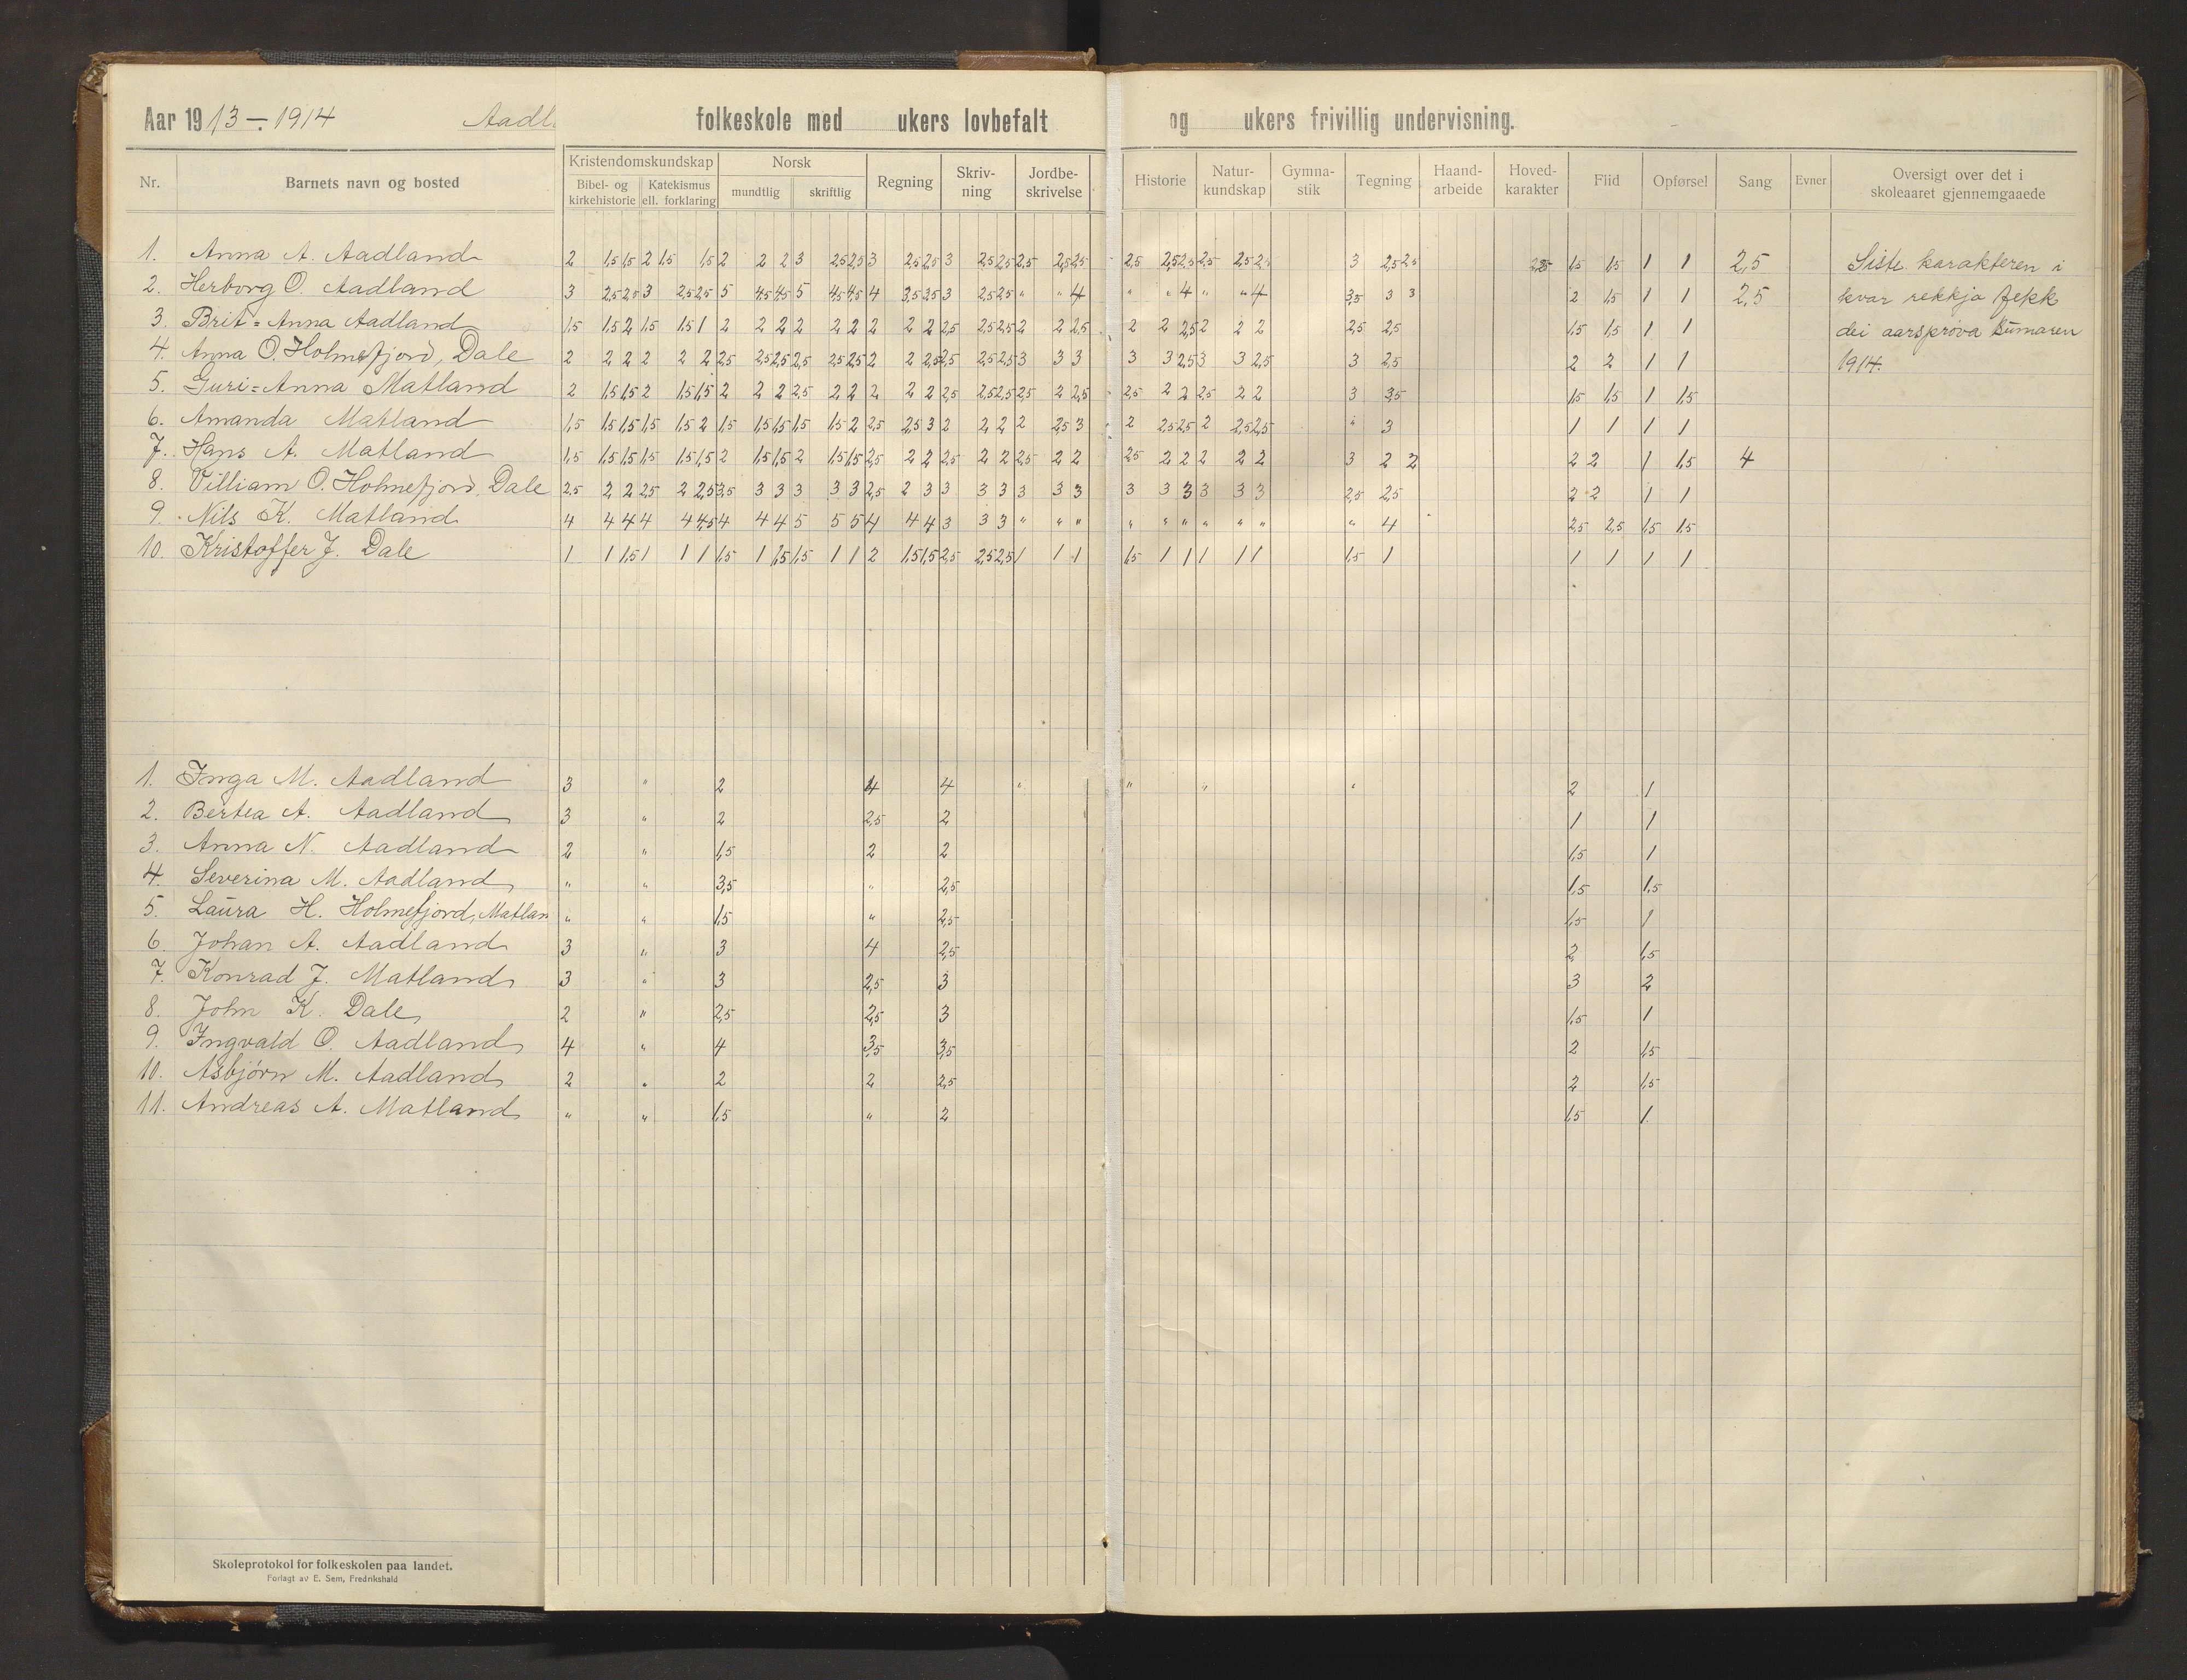 Aar 1913–1914 Aadl. folkeskole med ukers lovbefalt og ukers frivillig undervisning.
Nr. Barnets navn og bosted Kristendomskundskap Norsk Regning Skriv-ning Jordbe-skrivelse Historie Natur-kundskap Gymna-stik Tegning Haand-arbeide Hoved-karakter Flid Opførsel Sang Evner Oversigt over det i skoleaaret gjennemgaaede
Bibel- og kirkehistorie Katekismus ell. forklaring mundtlig skriftlig
1. Anna A. Aadland 2 1,5 1,5 2 1,5 1,5 2 2 2 3 2,5 2,5 3 2,5 2,5 3 2,5 2,5 2,5 2,5 2,5 2,5 2,5 2,5 2,5 2,5 2,5 3 2,5 2,5 1,5 1,5 1 1 2,5 Siste karakteren i
2. Herborg O. Aadland 3 2,5 2,5 3 2,5 2,5 5 4,5 4,5 5 4,5 4,5 4 3,5 3,5 3 2,5 2,5 " " 4 " " 4 " " 4 3,5 3 3 2 1,5 1 1 2,5 kvar rekkja fekk
3. Brit=Anna Aadland 1,5 1,5 2 1,5 1,5 1 2 2 2 2 2 2 2 2 2 2,5 2,5 2,5 2 2 2,5 2 2 2,5 2 2 2 2,5 2,5 1,5 1,5 1 1 dei aarsprøva sumaren
4. Anna O. Holmefjord, Dale 2 2 2 2 2 2 2,5 2,5 2,5 2,5 2,5 2,5 2 2 2,5 2,5 2,5 2,5 3 3 3 3 3 2,5 3 3 2,5 3 2,5 2 2 1 1 1914.
5. Guri=Anna Matland 2 1,5 1,5 2 1,5 1,5 2 2 2 2,5 2 2 2 2 2 2,5 2,5 2,5 2,5 2 2,5 2,5 2 2 2,5 2 2 3 3,5 1,5 1,5 1 1,5
6. Amanda Matland 1,5 1,5 1,5 1,5 1,5 2 1,5 1,5 1,5 1,5 1,5 2 2,5 2,5 3 2 2 2 2 2,5 3 2 2,5 2,5 2 2,5 2,5 " 3 1 1 1 1
7. Hans A. Matland 1,5 1,5 1,5 1,5 1,5 1,5 2 1,5 1,5 2 1,5 1,5 2,5 2 2 2,5 2 2 2,5 2 2 2,5 2 2 2 2 2 3 2 2 2 2 1 1,5 4
8. Villiam O. Holmefjord, Dale 2,5 2 2 2,5 2 2,5 3,5 3 3 3 3 3 2,5 2 3 3 3 3 3 3 3 3 3 3 3 3 3 2,5 2,5 2 2 1 1
9. Nils K. Matland 4 4 4 4 4 4,5 4 4 4 5 5 5 4 4 4 3 3 3 " " " " " " " " " " 4 2,5 2,5 1,5 1,5
10. Kristoffer J. Dale 1 1 1,5 1 1 1 1,5 1 1,5 1,5 1 1 2 1,5 1,5 2,5 2,5 2,5 1 1 1 1,5 1 1 1 1 1 1,5 1 1 1 1 1
1. Inga M. Aadland 3 " 2 4 4 " " " " 2 1
2. Bertea A. Aadland 3 " 2 2,5 2 1 1
3. Anna N. Aadland 2 " 1,5 2 2 1,5 1
4. Severina M. Aadland " " 3,5 " 2,5 1,5 1,5
5. Laura H. Holmefjord, Matlan " " 1,5 " 2,5 1,5 1
6. Johan A. Aadland 3 " 3 4 2,5 2 1,5
7. Konrad J. Matland 3 " 3 2,5 3 3 2
8. John K. Dale 2 " 2,5 2,5 3 1,5 1
9. Ingvald O. Aadland 4 " 4 3,5 3,5 2 1,5
10. Asbjörn M. Aadland 2 " 2 2 2,5 2 1,5
11. Andreas A. Matland " " 1,5 " 2 1,5 1
Skoleprotokol for folkeskolen paa landet.
Forlagt av E. Sem, Fredrikshald